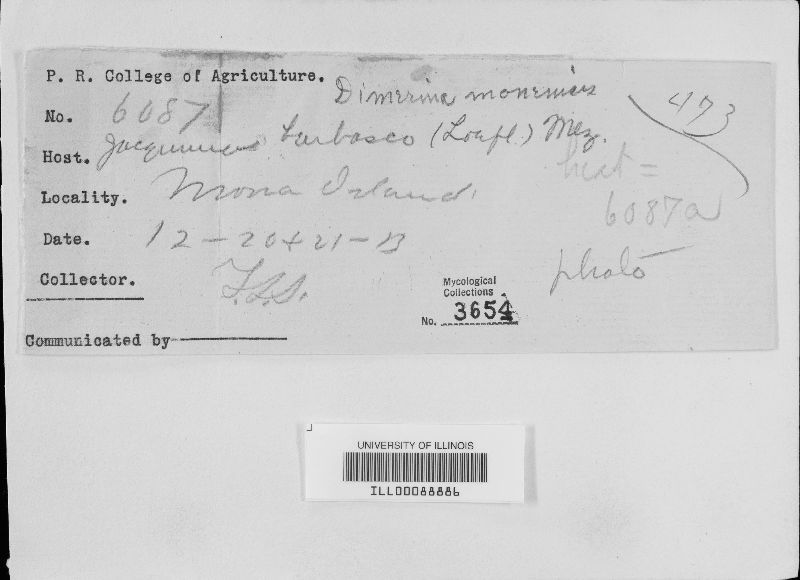 P. R. College of Agriculture.
Dimerina monensis
No. 6087
473
Host. Jacquinia barbasco (Loefl.) Mez.
host =
6087a
Locality. Mona Island.
Date. 12-20+21-13
photo
Collector. F.L.S.
Mycological
Collections
No. 3654
Communicated by
UNIVERSITY OF ILLINOIS
ILL00088886